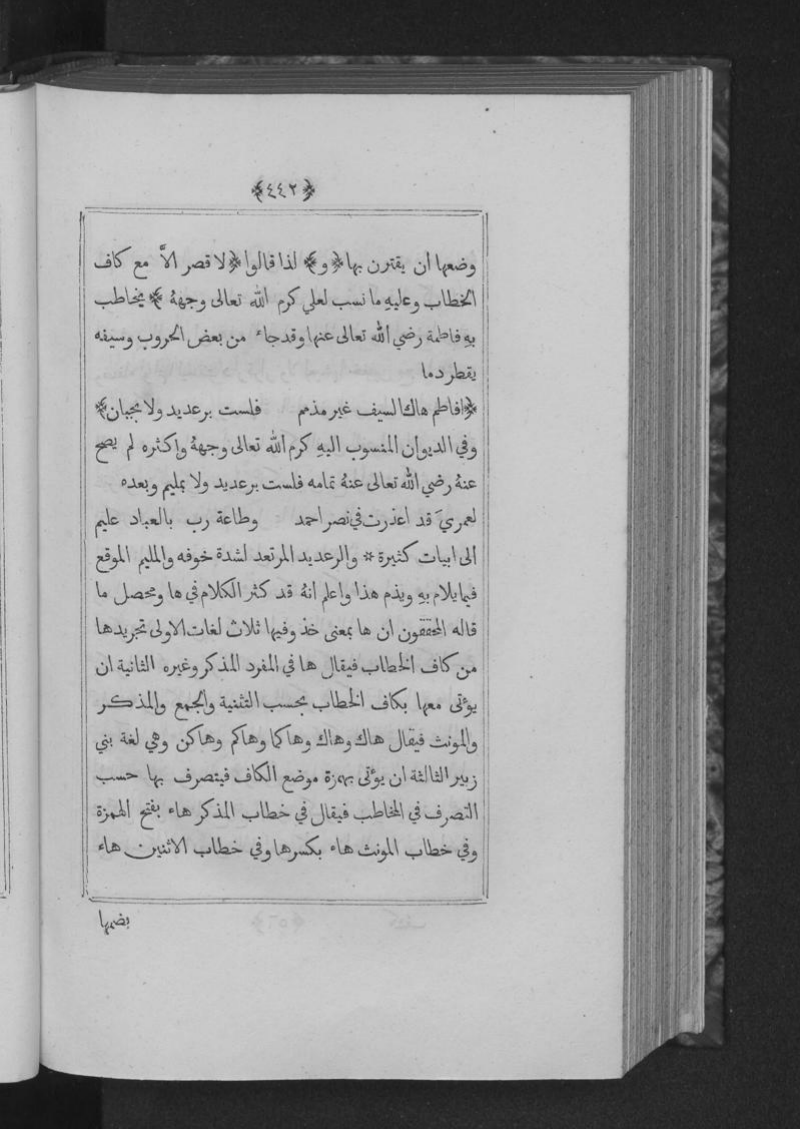 ﴿٤٤٢﴾
وضعها ان يقترن بها ﴿و﴾ لذا قالوا ﴿لا قصر الاَّ مع كاف
الخطاب وعليهِ ما نسب لعلي كرم الله تعالى وجههُ﴾ يخاطب
بهِ فاطمة رضي الله تعالى عنها وقد جاء من بعض الحروب وسيفه
يقطر دما
﴿افاطم هاك السيف غير مذمم فلست برعديد ولا بجبان﴾
وفي الديوان المنسوب اليهِ كرم الله تعالى وجههُ واكثره لم يصح
عنهُ رضي الله تعالى عنهُ تمامه فلست برعديد ولا بمليم وبعده
لعمريَ قد اعذرت في نصر احمد وطاعة رب بالعباد عليم
الى ابيات كثيرة * والرعديد المرتعد لشدة خوفه والمليم الموقع
فيما يلام بهِ ويذم هذا واعلم انهُ قد كثر الكلام في ها ومحصل ما
قاله المحققون ان ها بمعنى خذ وفيها ثلاث لغات الاولى تجريدها
من كاف الخطاب فيقال ها في المفرد المذكر وغيره الثانية ان
يؤتى معها بكاف الخطاب بحسب التثنية والجمع والمذكر
والمونث فيقال هاك وهاك وهاكما وهاكم وهاكن وهي لغة بني
زبير الثالثة ان يؤتى بهمزة موضع الكاف فيتصرف بها حسب
التصرف في المخاطب فيقال في خطاب المذكر هاء بفتح الهمزة
وفي خطاب المونث هاء بكسرها وفي خطاب الاثنين هاء
بضمها